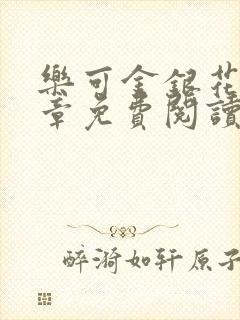 樂可金銀花
章免費閱讀
醉漪如轩原子